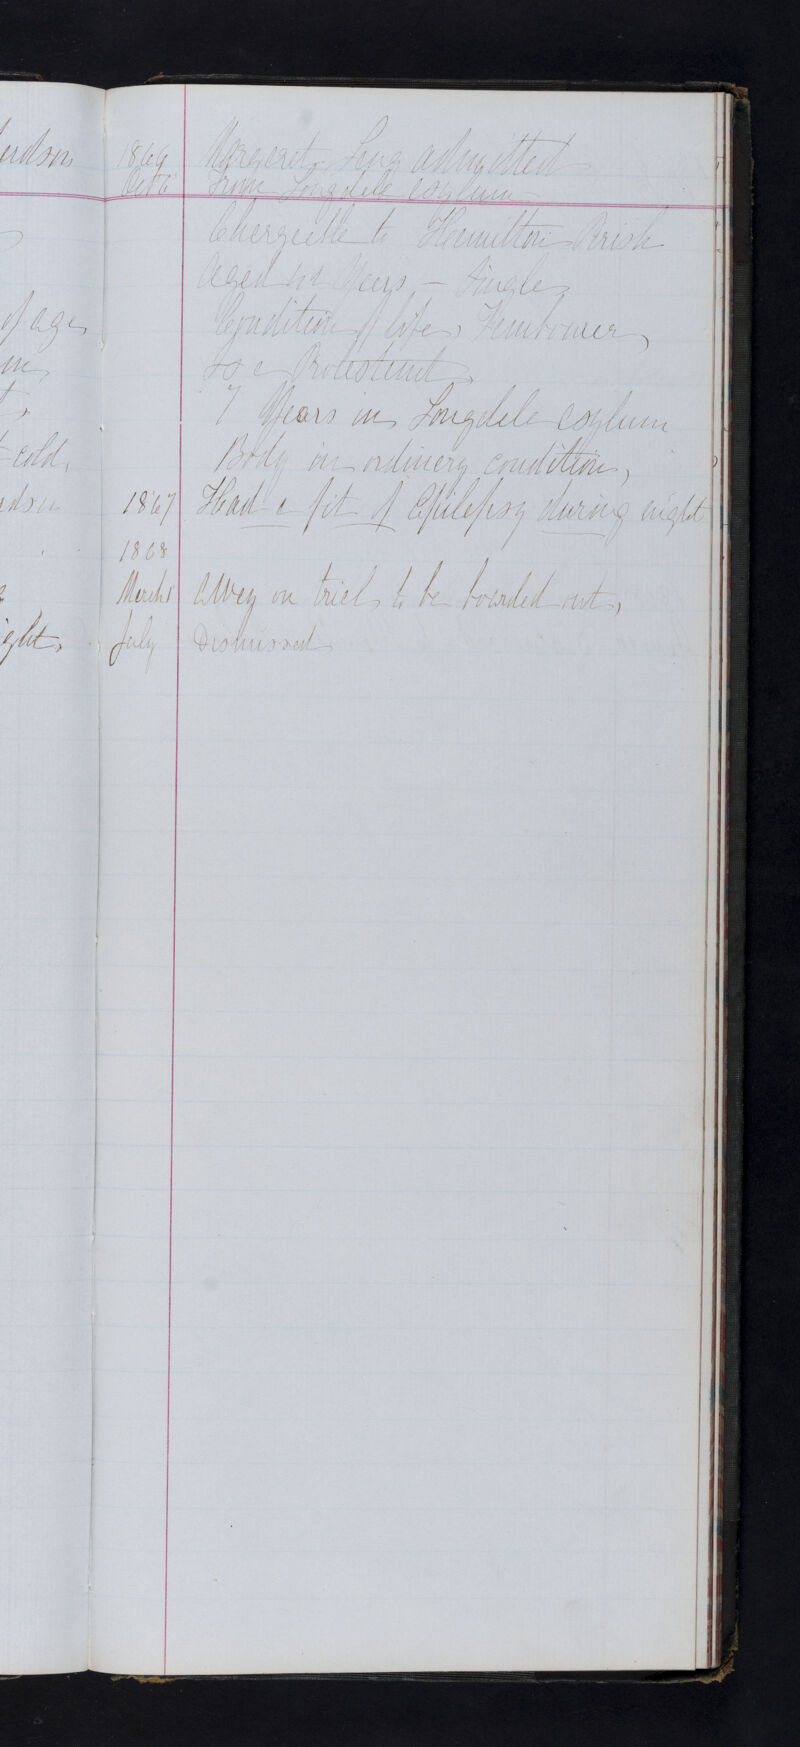 erdson
of age
cold,
dson
ight,
Margaret Lang admitted
Oct 6 from Longdale asylum
Chargeable to Hamilton Parish
aged years - Single
Condition of life,
Is a Protestant
7 Years in Longdale asylum
Body in ordinary condition,
1867 Had a fit of Epilepsy during night
1868
March Away on trial to be boarded out,
July Dismissed